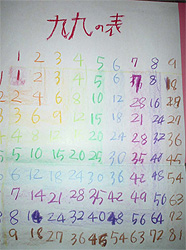 九九の表
1 2 3 4 5 6 7 8 9
1 2 3 4 5 6 7 8 9
2 4 6 8 10 12 14 16 18
3 6 9 12 15 18 21 24 27
4 8 12 16 20 24 28 32 36
5 10 15 20 25 30 35 40 45
6 12 18 24 30 36 42 48 54
7 14 21 28 35 42 49 56 63
8 16 24 32 40 48 56 64 72
9 18 27 36 45 54 63 72 81